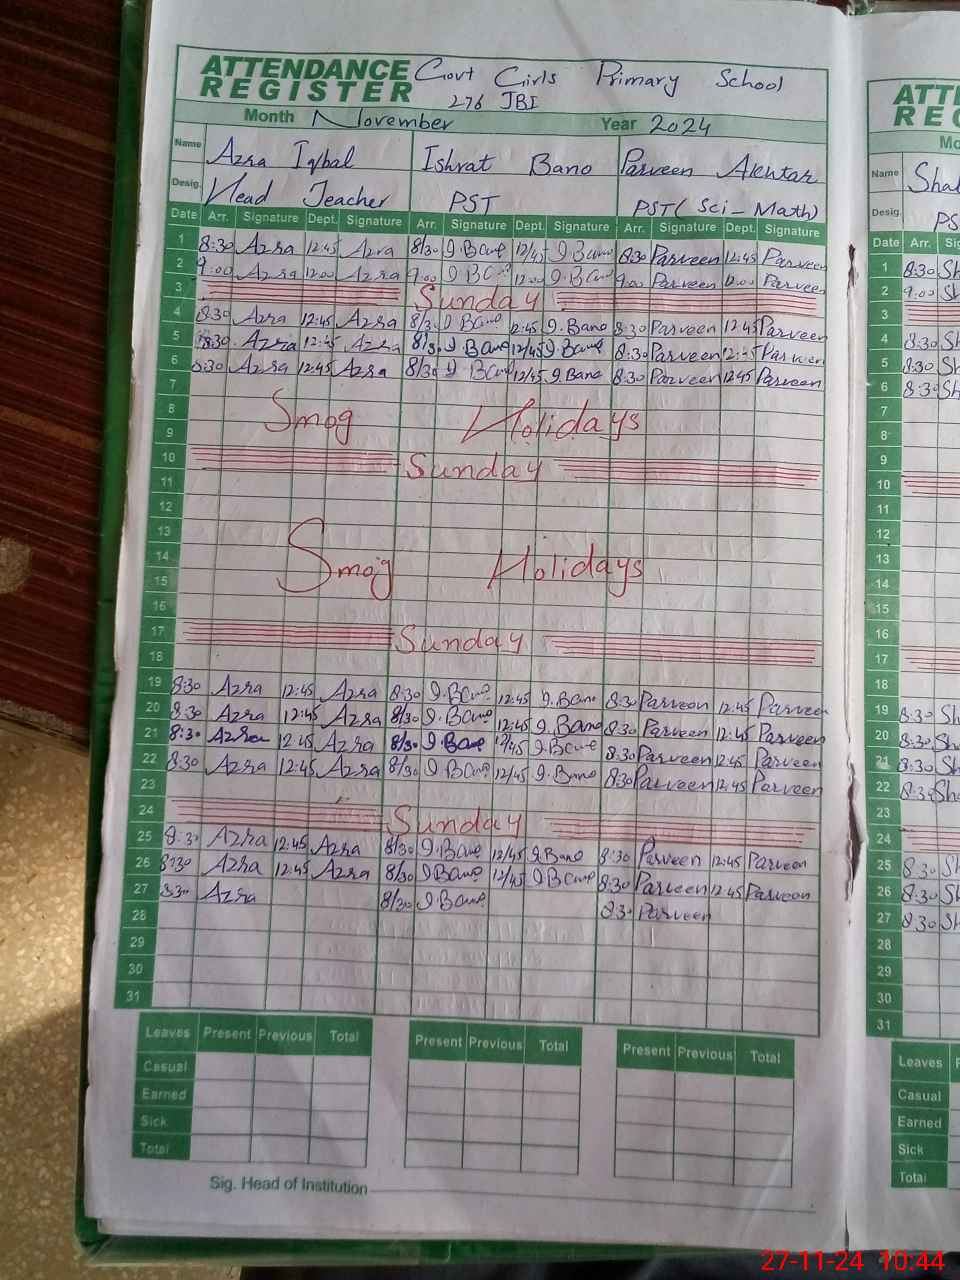 ATTENDANCE REGISTER Govt Girls Primary School
276 JBI
Month November Year 2024
Name Azra Iqbal Ishrat Bano Parveen Akhtar
Desig. Head Teacher PST PST (Sci-Math)
Date Arr. Signature Dept. Signature Arr. Signature Dept. Signature Arr. Signature Dept. Signature
1 8:30 Azra 12:45 Azra 8/30 I.Bano 12/45 I.Bano 8:30 Parveen 12:45 Parveen
2 9:00 Azra 12:00 Azra 9:00 I.Bano 12:00 I.Bano 9:00 Parveen 12:00 Parveen
3 Sunday
4 8:30 Azra 12:45 Azra 8/30 I.Bano 12:45 I.Bano 8:30 Parveen 12:45 Parveen
5 8:30 Azra 12:45 Azra 8/30 I.Bano 12/45 I.Bano 8:30 Parveen 12:45 Parveen
6 8:30 Azra 12:45 Azra 8/30 I.Bano 12/45 I.Bano 8:30 Parveen 12:45 Parveen
7
8 Smog Holidays
9
10 Sunday
11
12
13
14 Smog Holidays
15
16
17 Sunday
18
19 8:30 Azra 12:45 Azra 8:30 I.Bano 12:45 I.Bano 8:30 Parveen 12:45 Parveen
20 8:30 Azra 12:45 Azra 8/30 I.Bano 12:45 I.Bano 8:30 Parveen 12:45 Parveen
21 8:30 Azra 12:45 Azra 8/30 I.Bano 12/45 I.Bano 8:30 Parveen 12:45 Parveen
22 8:30 Azra 12:45 Azra 8/30 I.Bano 12/45 I.Bano 8:30 Parveen 12:45 Parveen
23
24 Sunday
25 8:30 Azra 12:45 Azra 8/30 I.Bano 12/45 I.Bano 8:30 Parveen 12:45 Parveen
26 8:30 Azra 12:45 Azra 8/30 I.Bano 12/45 I.Bano 8:30 Parveen 12:45 Parveen
27 8:30 Azra 8/30 I.Bano 8:30 Parveen
28
29
30
31
Leaves Present Previous Total Present Previous Total Present Previous Total
Casual
Earned
Sick
Total
Sig. Head of Institution
ATT
REG
Mo
Name Sha
Desig. PS
Date Arr. Si
1 8:30 Sh
2 9:00 Sh
3
4 8:30 Sh
5 8:30 Sh
6 8:30 Sh
7
8
9
10
11
12
13
14
15
16
17
18
19 8:30 Sh
20 8:30 Sh
21 8:30 Sh
22 8:30 Sh
23
24
25 8:30 Sh
26 8:30 Sh
27 8:30 Sh
28
29
30
31
Leaves P
Casual
Earned
Sick
Total
27-11-24 10:44